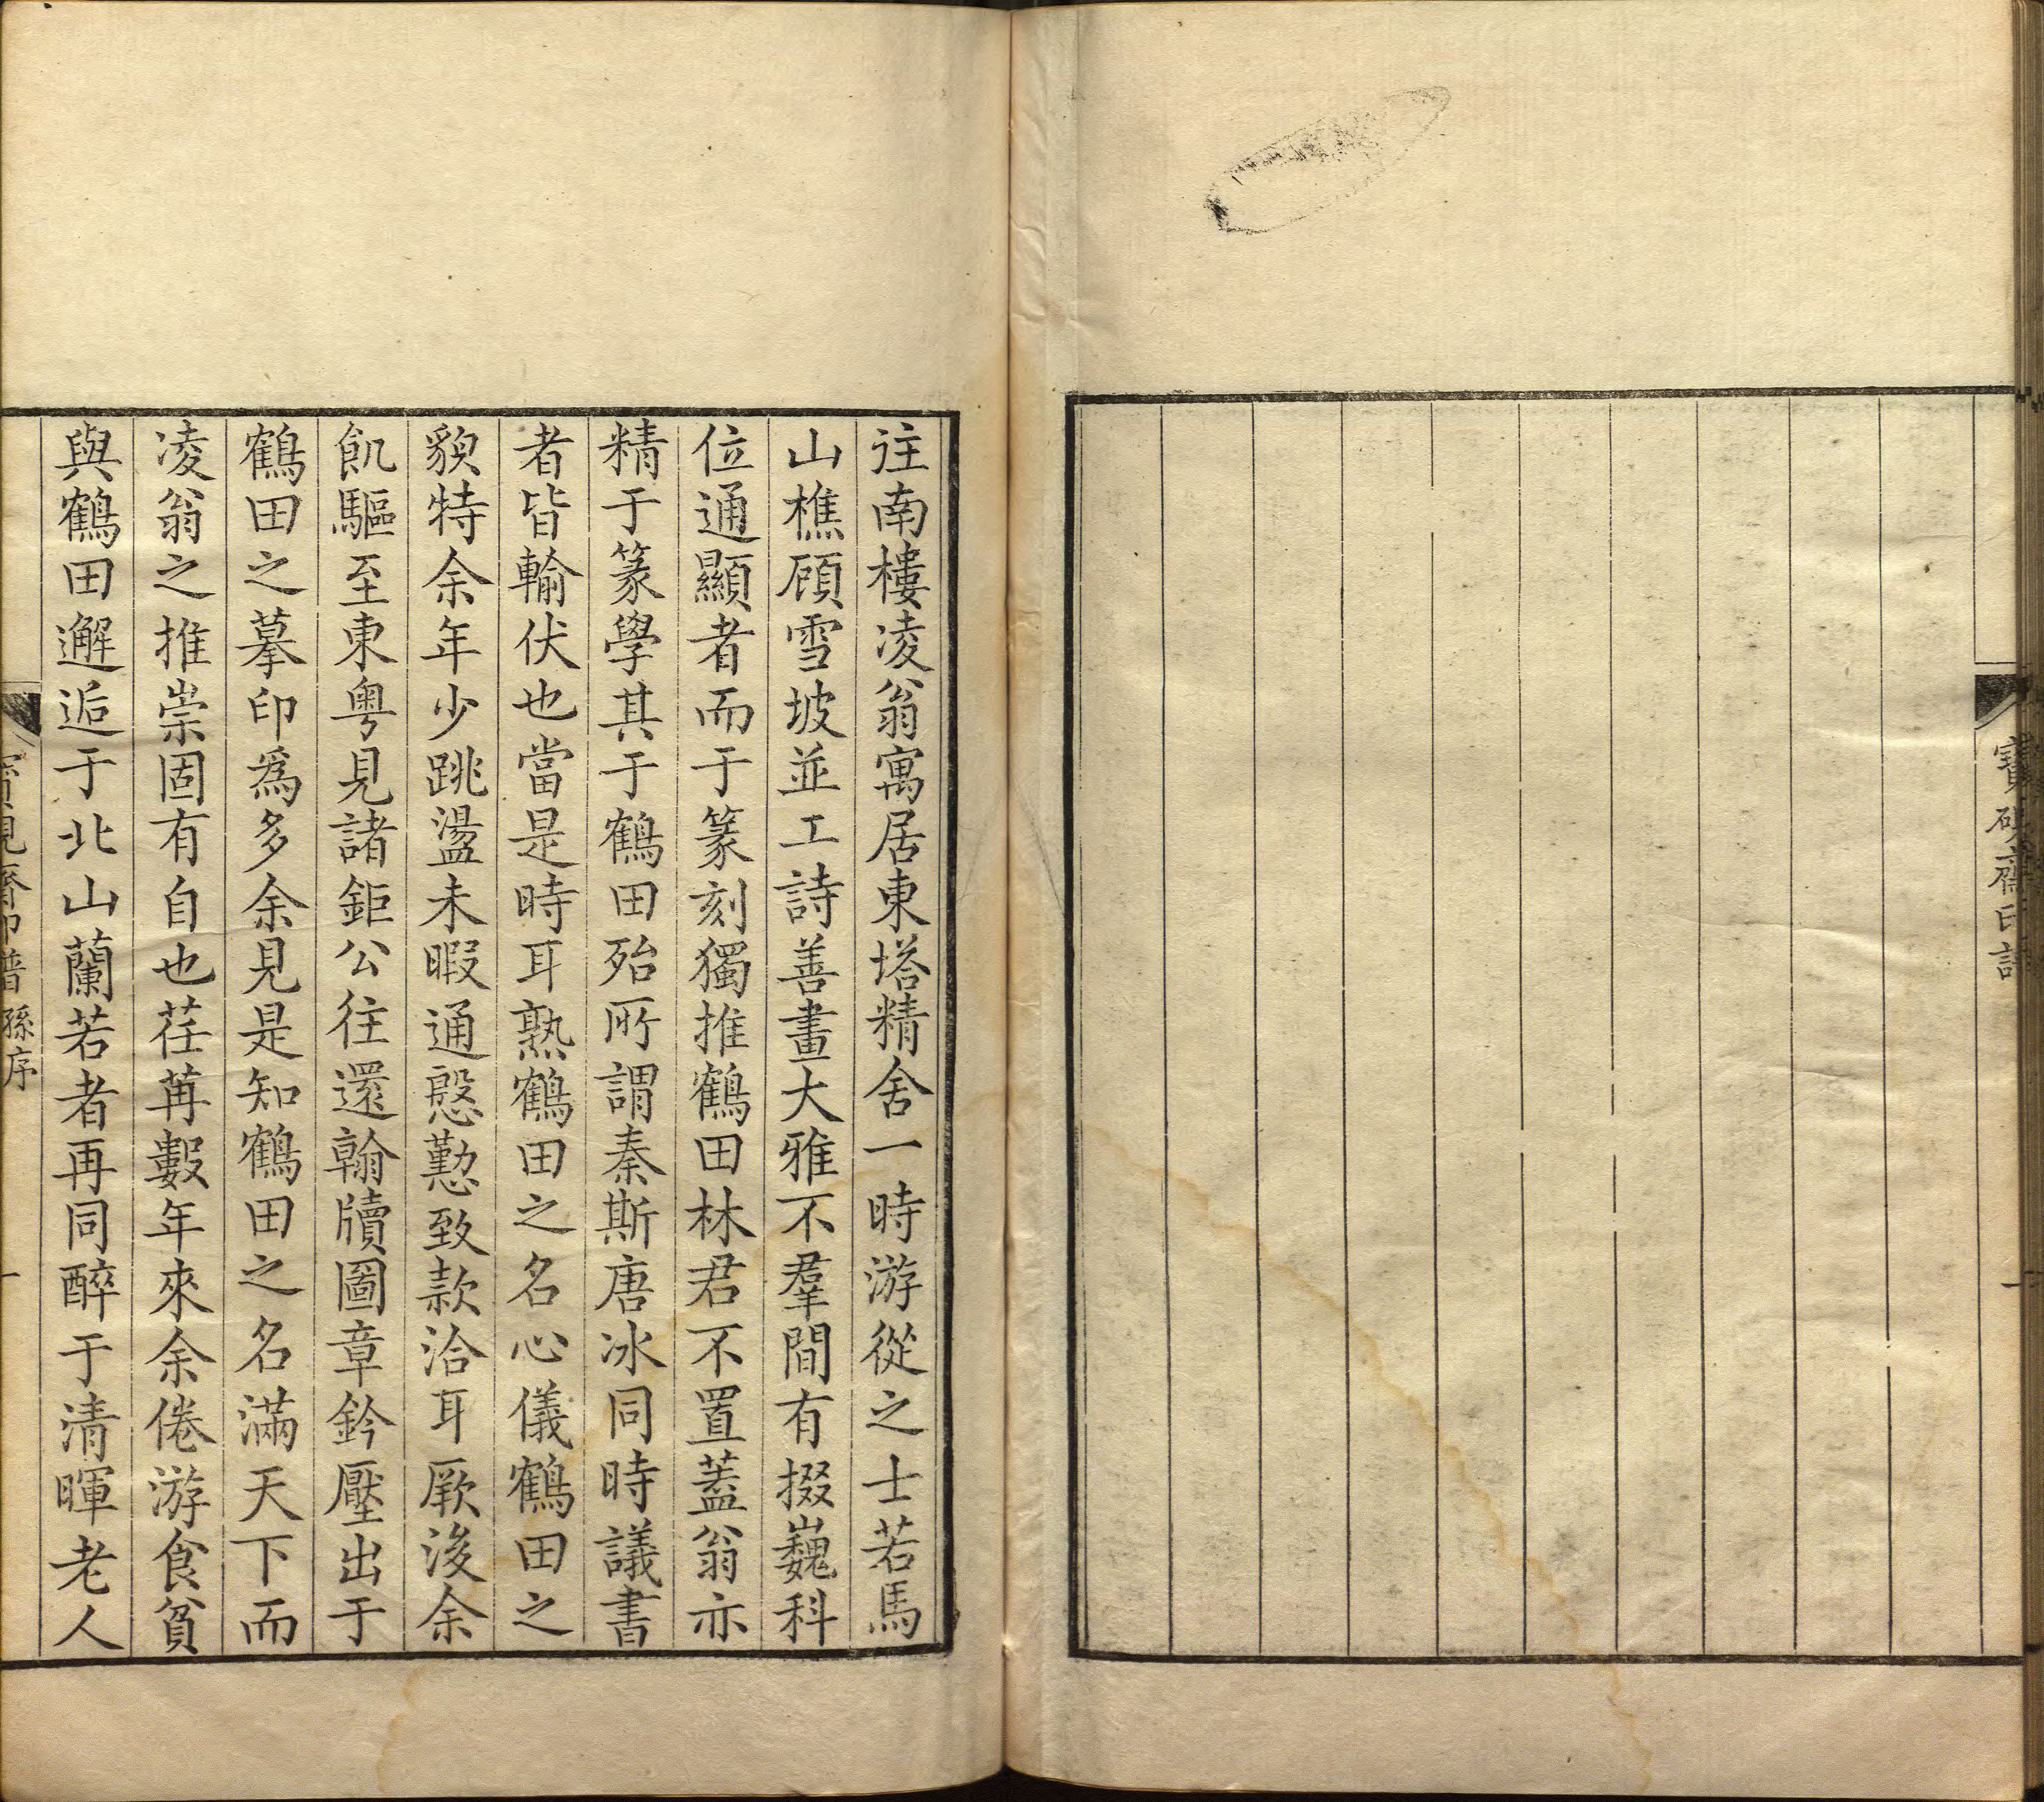 寶硯齋印譜
一
往南樓凌翁寓居東塔精舍一時游從之士若馬
山樵顧雪坡並工詩善畫大雅不羣間有掇巍科
位通顯者而于篆刻獨推鶴田林君不置蓋翁亦
精于篆學其于鶴田殆所謂秦斯唐冰同時議書
者皆輸伏也當是時耳熟鶴田之名心儀鶴田之
貌特余年少跳盪未暇通慇懃致款洽耳厥後余
飢驅至東粵見諸鉅公往還翰牘圖章鈐壓出于
鶴田之摹印爲多余見是知鶴田之名滿天下而
凌翁之推崇固有自也荏苒數年來余倦游食貧
與鶴田邂逅于北山蘭若者再同醉于清暉老人
寶硯齋印譜 孫序
一